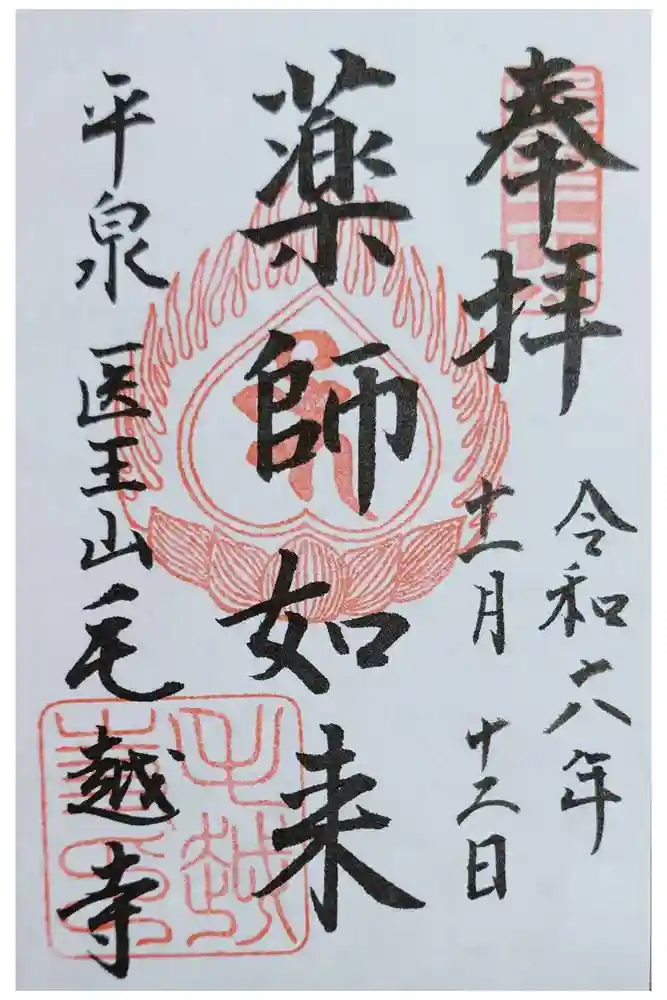 奉拝
令和六年
十一月 十二日
薬師如来
平泉 医王山 毛越寺
毛越
寺印